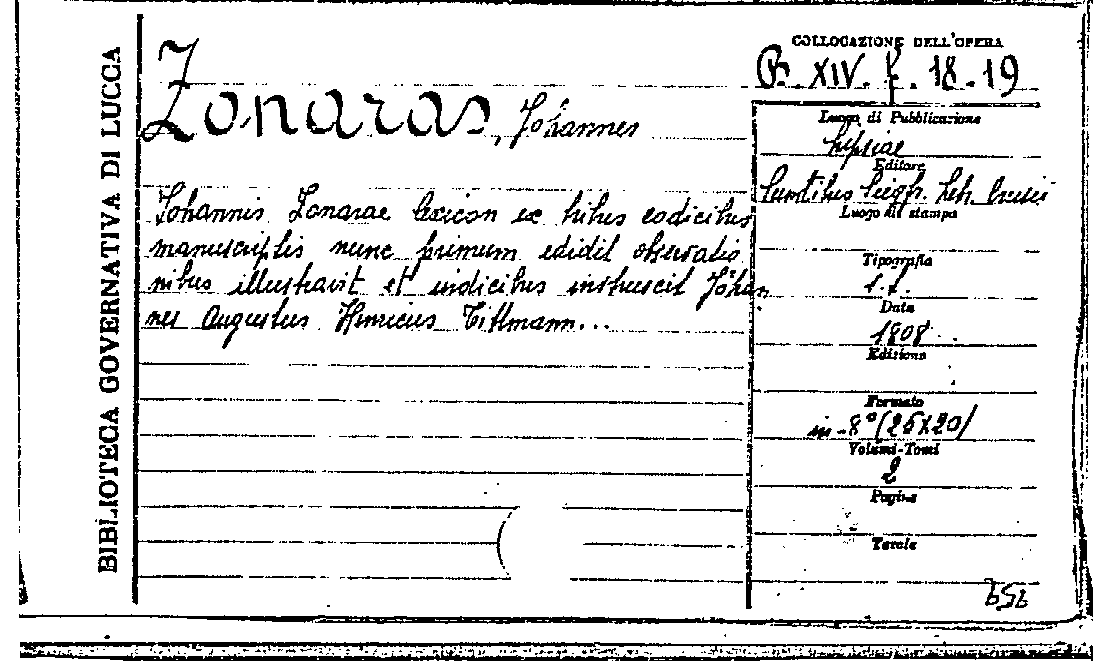 BIBLIOTECA GOVERNATIVA DI LUCCA
Zonaras, Johannes
Johannis Zonarae lexicon ex tribus codicibus
manuscriptis nunc primum edidit observatio
nibus illustravit et indicibus instruxit Johan
nes Augustus Henricus Tittmann...
COLLOCAZIONE DELL'OPERA
B. XIV. f. 18-19
Luogo di Pubblicazione
Lipsiae
Editore
Sumtibus Siegfr. Leb. Crusii
Luogo di stampa
Tipografia
s.t.
Data
1808
Edizione
Formato
in-8° (26x20)
Volumi-Tomi
2
Pagine
Tavole